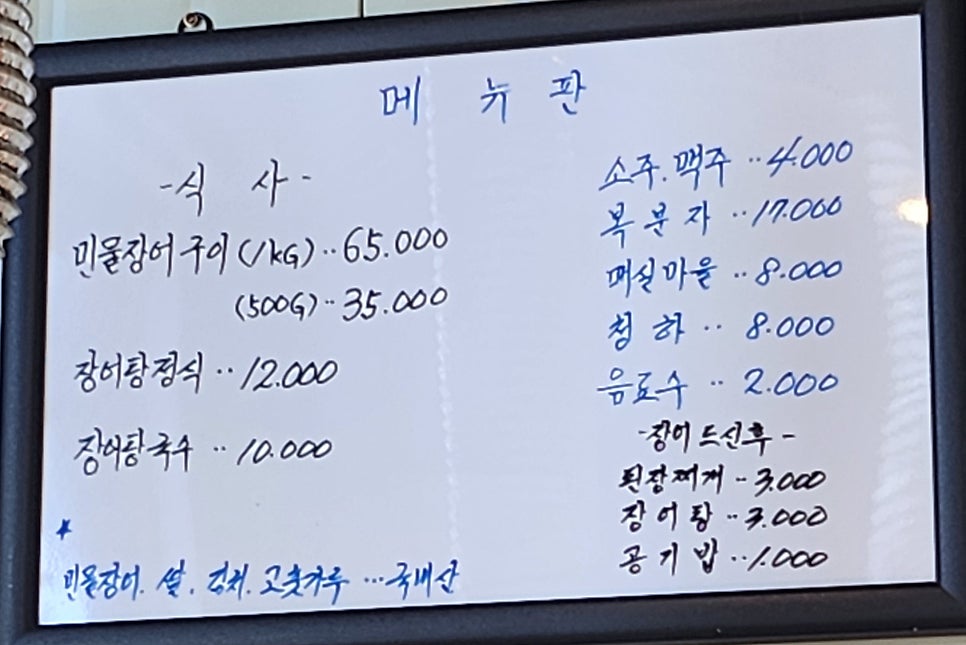 메 뉴 판
- 식 사 -
민물장어 구이 (1kG) ·· 65.000
(500G) ·· 35.000
장어탕 정식 ·· 12.000
장어탕 국수 ·· 10.000
*
민물장어. 쌀. 김치. 고춧가루 ··· 국내산
소주. 맥주 ·· 4.000
복 분 자 ·· 17.000
매실마을 ·· 8.000
청 하 ·· 8.000
음료수 ·· 2.000
- 장어 드신후 -
된장찌개 - 3.000
장 어 탕 ·· 3.000
공 기 밥 ·· 1.000